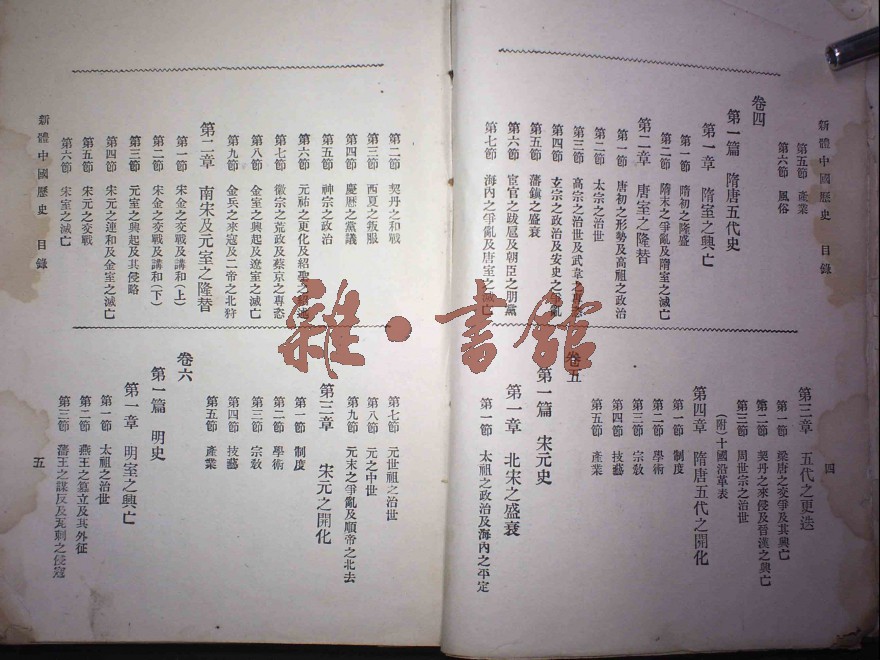 新體中國歷史 目錄
四
第五節 產業
第六節 風俗
卷四
第一篇 隋唐五代史
第一章 隋室之興亡
第一節 隋初之隆盛
第二節 隋末之爭亂及隋室之滅亡
第二章 唐室之隆替
第一節 唐初之形勢及高祖之政治
第二節 太宗之治世
第三節 高宗之治世及武韋之專恣
第四節 玄宗之政治及安史之爭亂
第五節 藩鎮之盛衰
第六節 宦官之跋扈及朝臣之朋黨
第七節 海內之爭亂及唐室之滅亡
第三章 五代之更迭
第一節 梁唐之交爭及其興亡
第二節 契丹之來侵及晉漢之興亡
第三節 周世宗之治世
(附)十國沿革表
第四章 隋唐五代之開化
第一節 制度
第二節 學術
第三節 宗教
第四節 技藝
第五節 產業
卷五
第一篇 宋元史
第一章 北宋之盛衰
第一節 太祖之政治及海內之平定
第二節 契丹之和戰
第三節 西夏之叛服
第四節 慶曆之黨議
第五節 神宗之政治
第六節 元祐之更化及紹聖之紹述
第七節 徽宗之荒政及蔡京之專恣
第八節 金室之興起及遼室之滅亡
第九節 金兵之來寇及二帝之北狩
第二章 南宋及元室之隆替
第一節 宋金之交戰及講和(上)
第二節 宋金之交戰及講和(下)
第三節 元室之興起及其侵略
第四節 宋元之連和及金室之滅亡
第五節 宋元之交戰
第六節 宋室之滅亡
新體中國歷史 目錄
第七節 元世祖之治世
第八節 元之中世
第九節 元末之爭亂及順帝之北去
第三章 宋元之開化
第一節 制度
第二節 學術
第三節 宗教
第四節 技藝
第五節 產業
卷六
第一篇 明史
第一章 明室之興亡
第一節 太祖之治世
第二節 燕王之篡立及其外征
第三節 藩王之謀反及瓦剌之侵寇
五
雜·書館